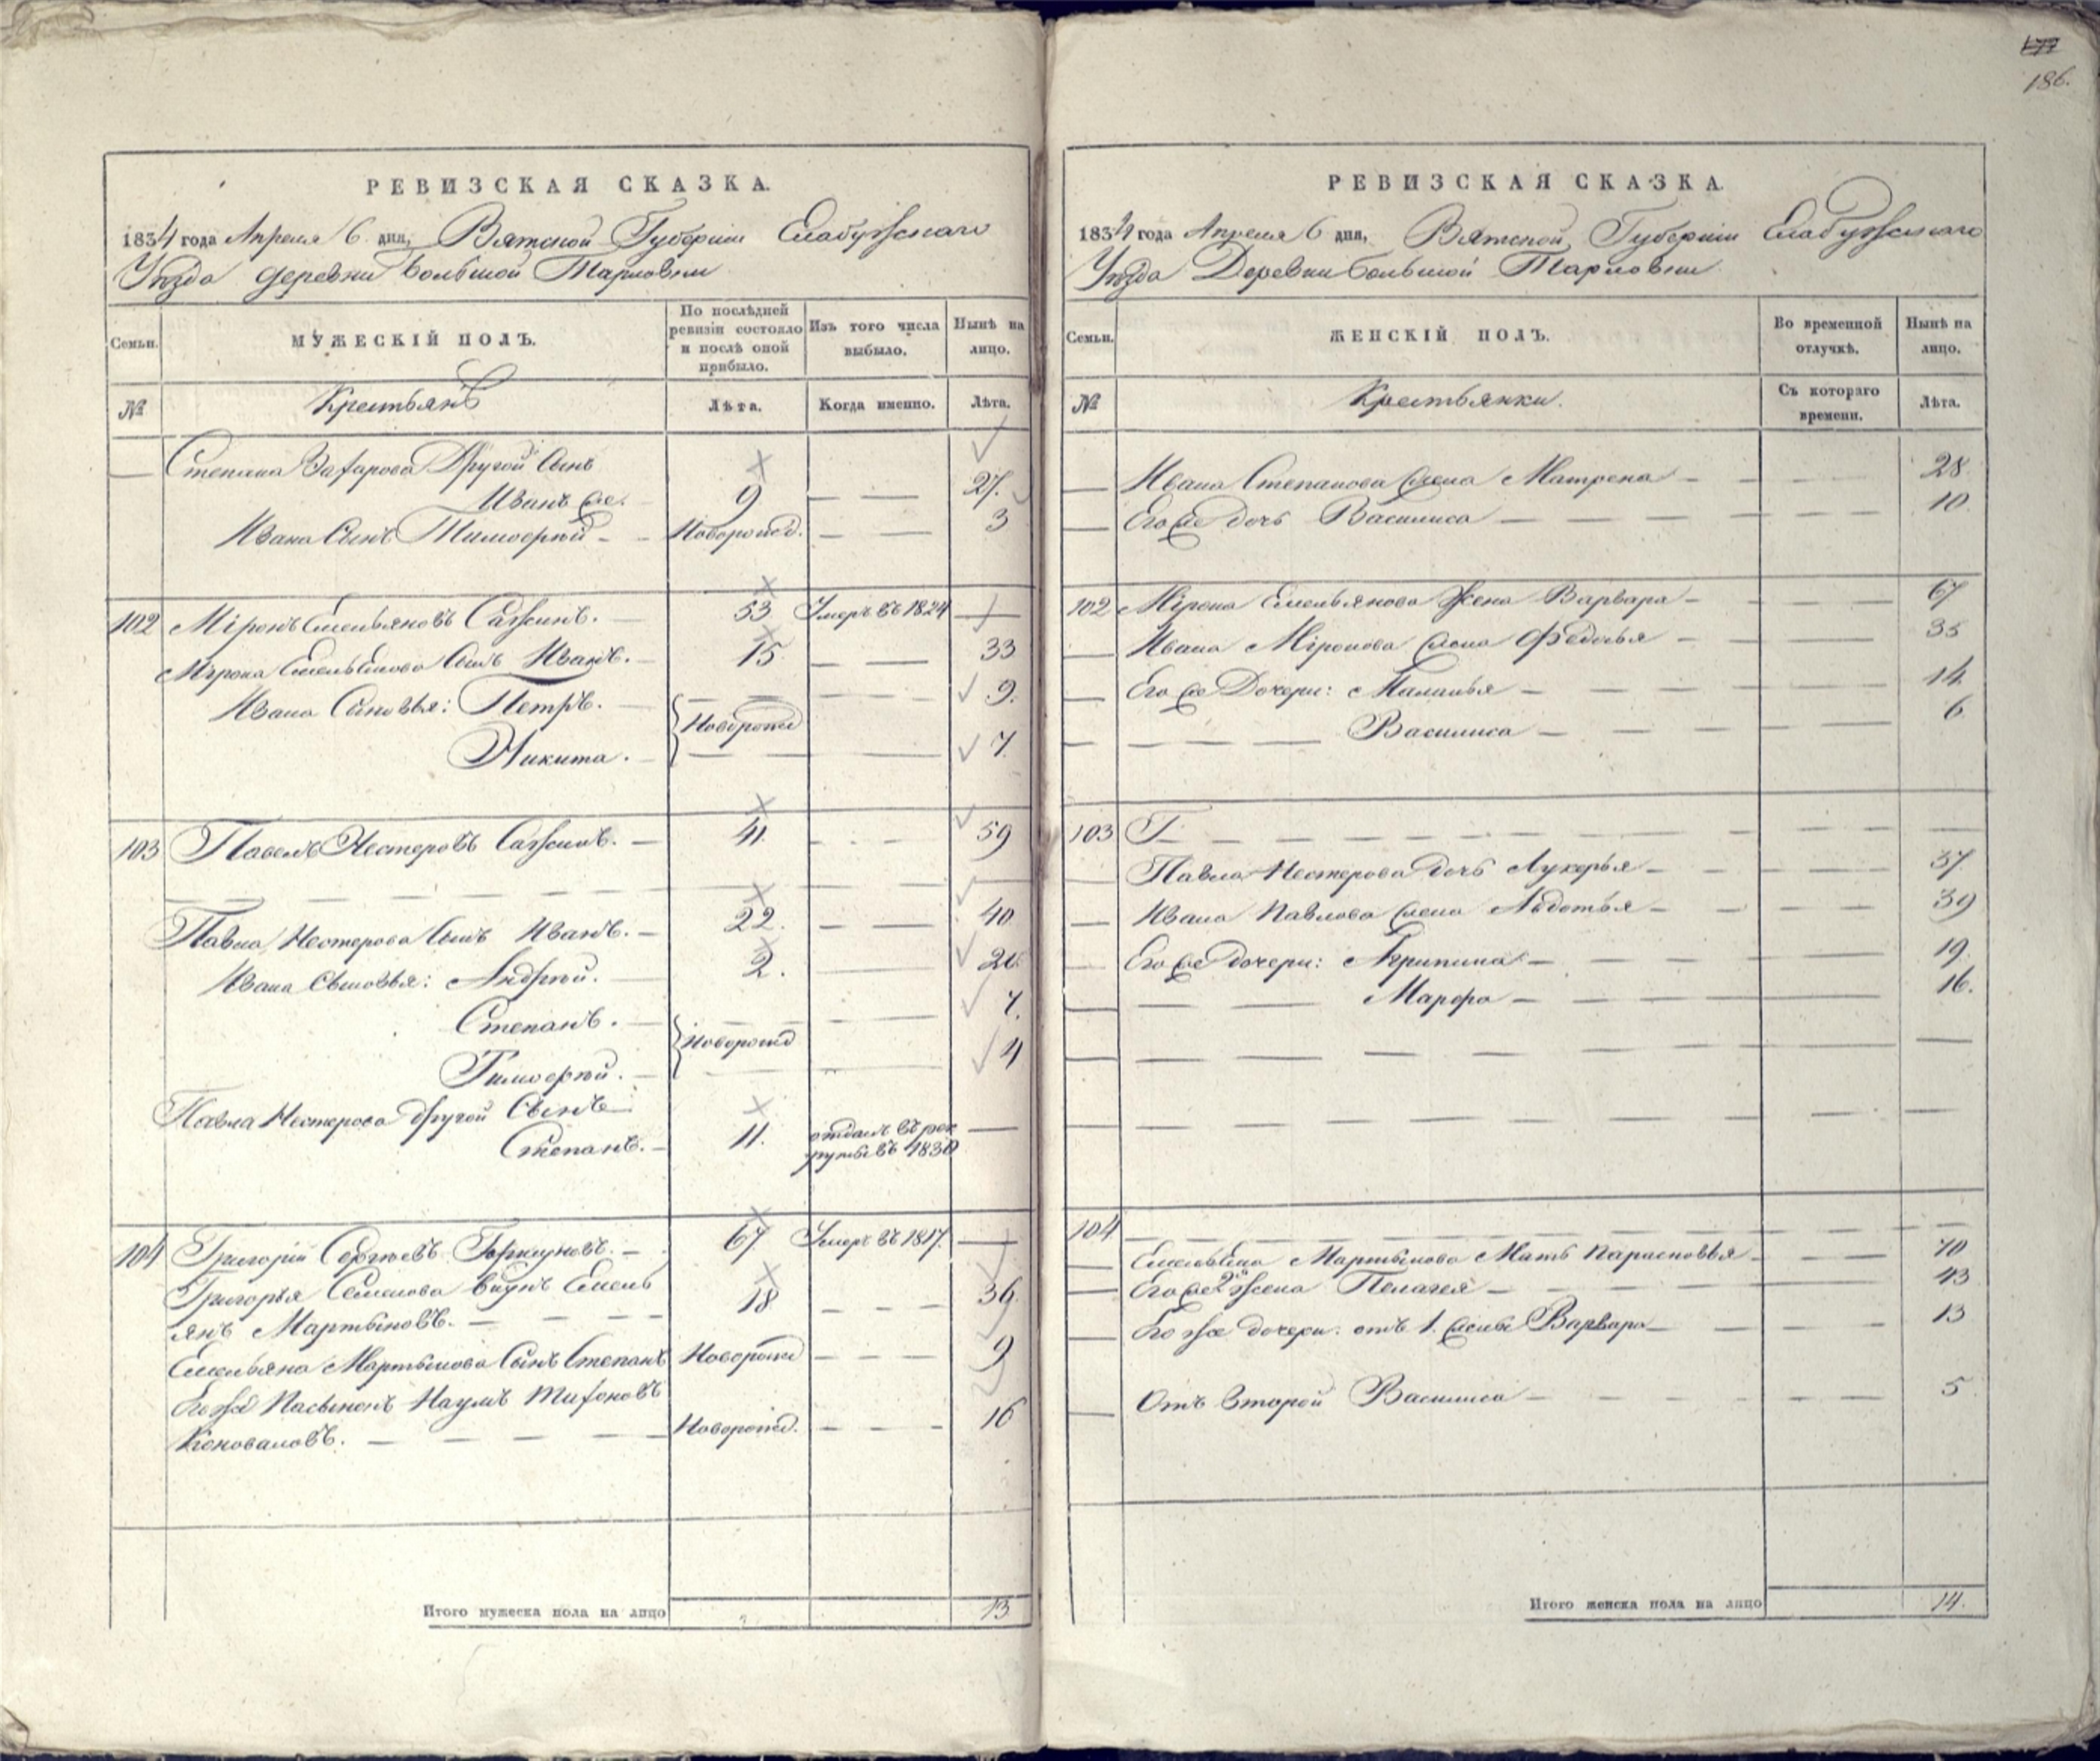 177
186.
РЕВИЗСКАЯ СКАЗКА.
1834 года Апреля 6 дня, Вятской Губерніи Елабужскаго
Уѣзда деревни большой Тарловки
Семьи.
МУЖЕСКІЙ ПОЛЪ.
По послѣдней ревизіи состояло и послѣ оной прибыло.
Изъ того числа выбыло.
Нынѣ на лицо.
№
Крестьянъ
Лѣта.
Когда именно.
Лѣта.
— Степана Захарова Другой Сынъ
Иванъ же. 9 — — 27.
Ивана Сынъ Тимофей — Новорожд. — — 3
102 Міронъ Емельяновъ Сажинъ. — 53 Умеръ въ 1824 —
Мірона Емельянова Сынъ Иванъ. — 15 — — 33
Ивана Сыновья: Петръ. — Новорожд — 9.
Никита. — — — 7.
103 Павелъ Нестеровъ Сажинъ. — 41. — — 59
Павла Нестерова Сынъ Иванъ. — 22. — — 40
Ивана сыновья: Андрей. — 2. — 20
Степанъ. — Новорожд — 7.
Тимофей. — — — 4
Павла Нестерова другой Сынъ
Степанъ. — 11. отданъ въ рек —
руты въ 1830
104 Григорій Сергѣевъ — 67 Умеръ въ 1817. —
Григорья Семенова внукъ Емель
янъ Мартыновъ. — 18 — — — 36.
Емельяна Мартынова Сынъ Степанъ Новорожд — — — 9
Его же Пасынокъ Наумъ Тихоновъ
Коноваловъ. — Новорожд. — — — 16
Итого мужеска пола на лицо 13
РЕВИЗСКАЯ СКАЗКА.
1834 года Апреля 6 дня, Вятской Губерніи Елабужскаго
Уѣзда Деревни большой Тарловки
Семьи.
ЖЕНСКІЙ ПОЛЪ.
Во временной отлучкѣ.
Нынѣ на лицо.
№
Крестьянки.
Съ котораго времени.
Лѣта.
— Ивана Степанова жена Матрена — 28
— Его же дочь Василиса — 10.
102 Мірона Емельянова Жена Варвара — 67
— Ивана Міронова жена Федосья — 35
— Его же Дочери: Маланья — 14.
— Василиса — 6
103
— Павла Нестерова дочь Лукерья — 37.
— Ивана Павлова жена Авдотья — 39
— Его же дочери: Агрипина — 19
— Марфа — 16.
104
— Емельяна Мартынова Мать Парасковья — 70
— Его же 2я жена Пелагея — 43
— Его же дочери: отъ 1. жены Варвара — 13
— Отъ второй Василиса — 5
Итого женска пола на лицо 14.